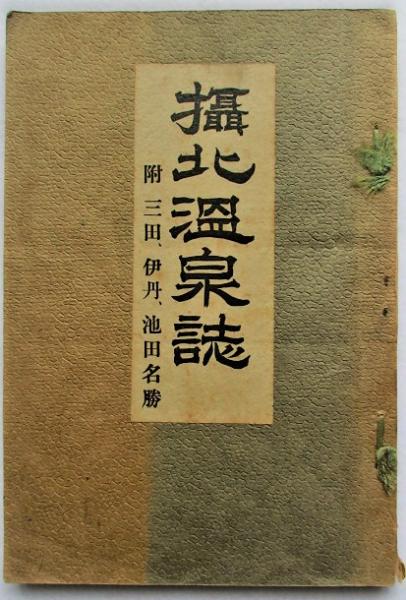 攝北溫泉誌
附 三田、伊丹、池田名勝